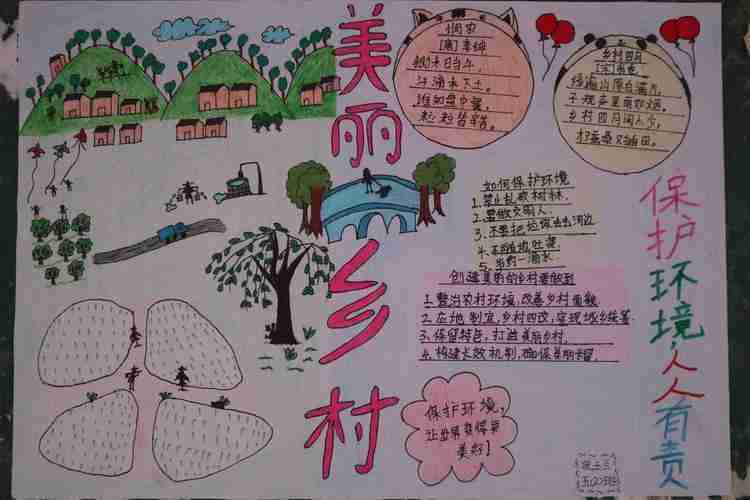 美丽乡村
悯农
[唐]李绅
锄禾日当午,
汗滴禾下土。
谁知盘中餐,
粒粒皆辛苦。
乡村四月
绿遍山原白满川,
子规声里雨如烟。
乡村四月闲人少,
才了蚕桑又插田。
如何保护环境
1.禁止乱砍树林.
2.要做文明人.
3.不要把垃圾丢去河边
4.不随地吐菜
5.节约一滴水
创建美丽的乡村要做到
1.整治农村环境,改善乡村面貌
2.应地制宜,乡村四改,实现城乡
3.保留特色,打造美丽乡村.
4.构建长效机制,确保美丽
保护环境,
让世界变得更
美好!
保护环境,人人有责
五(2)班